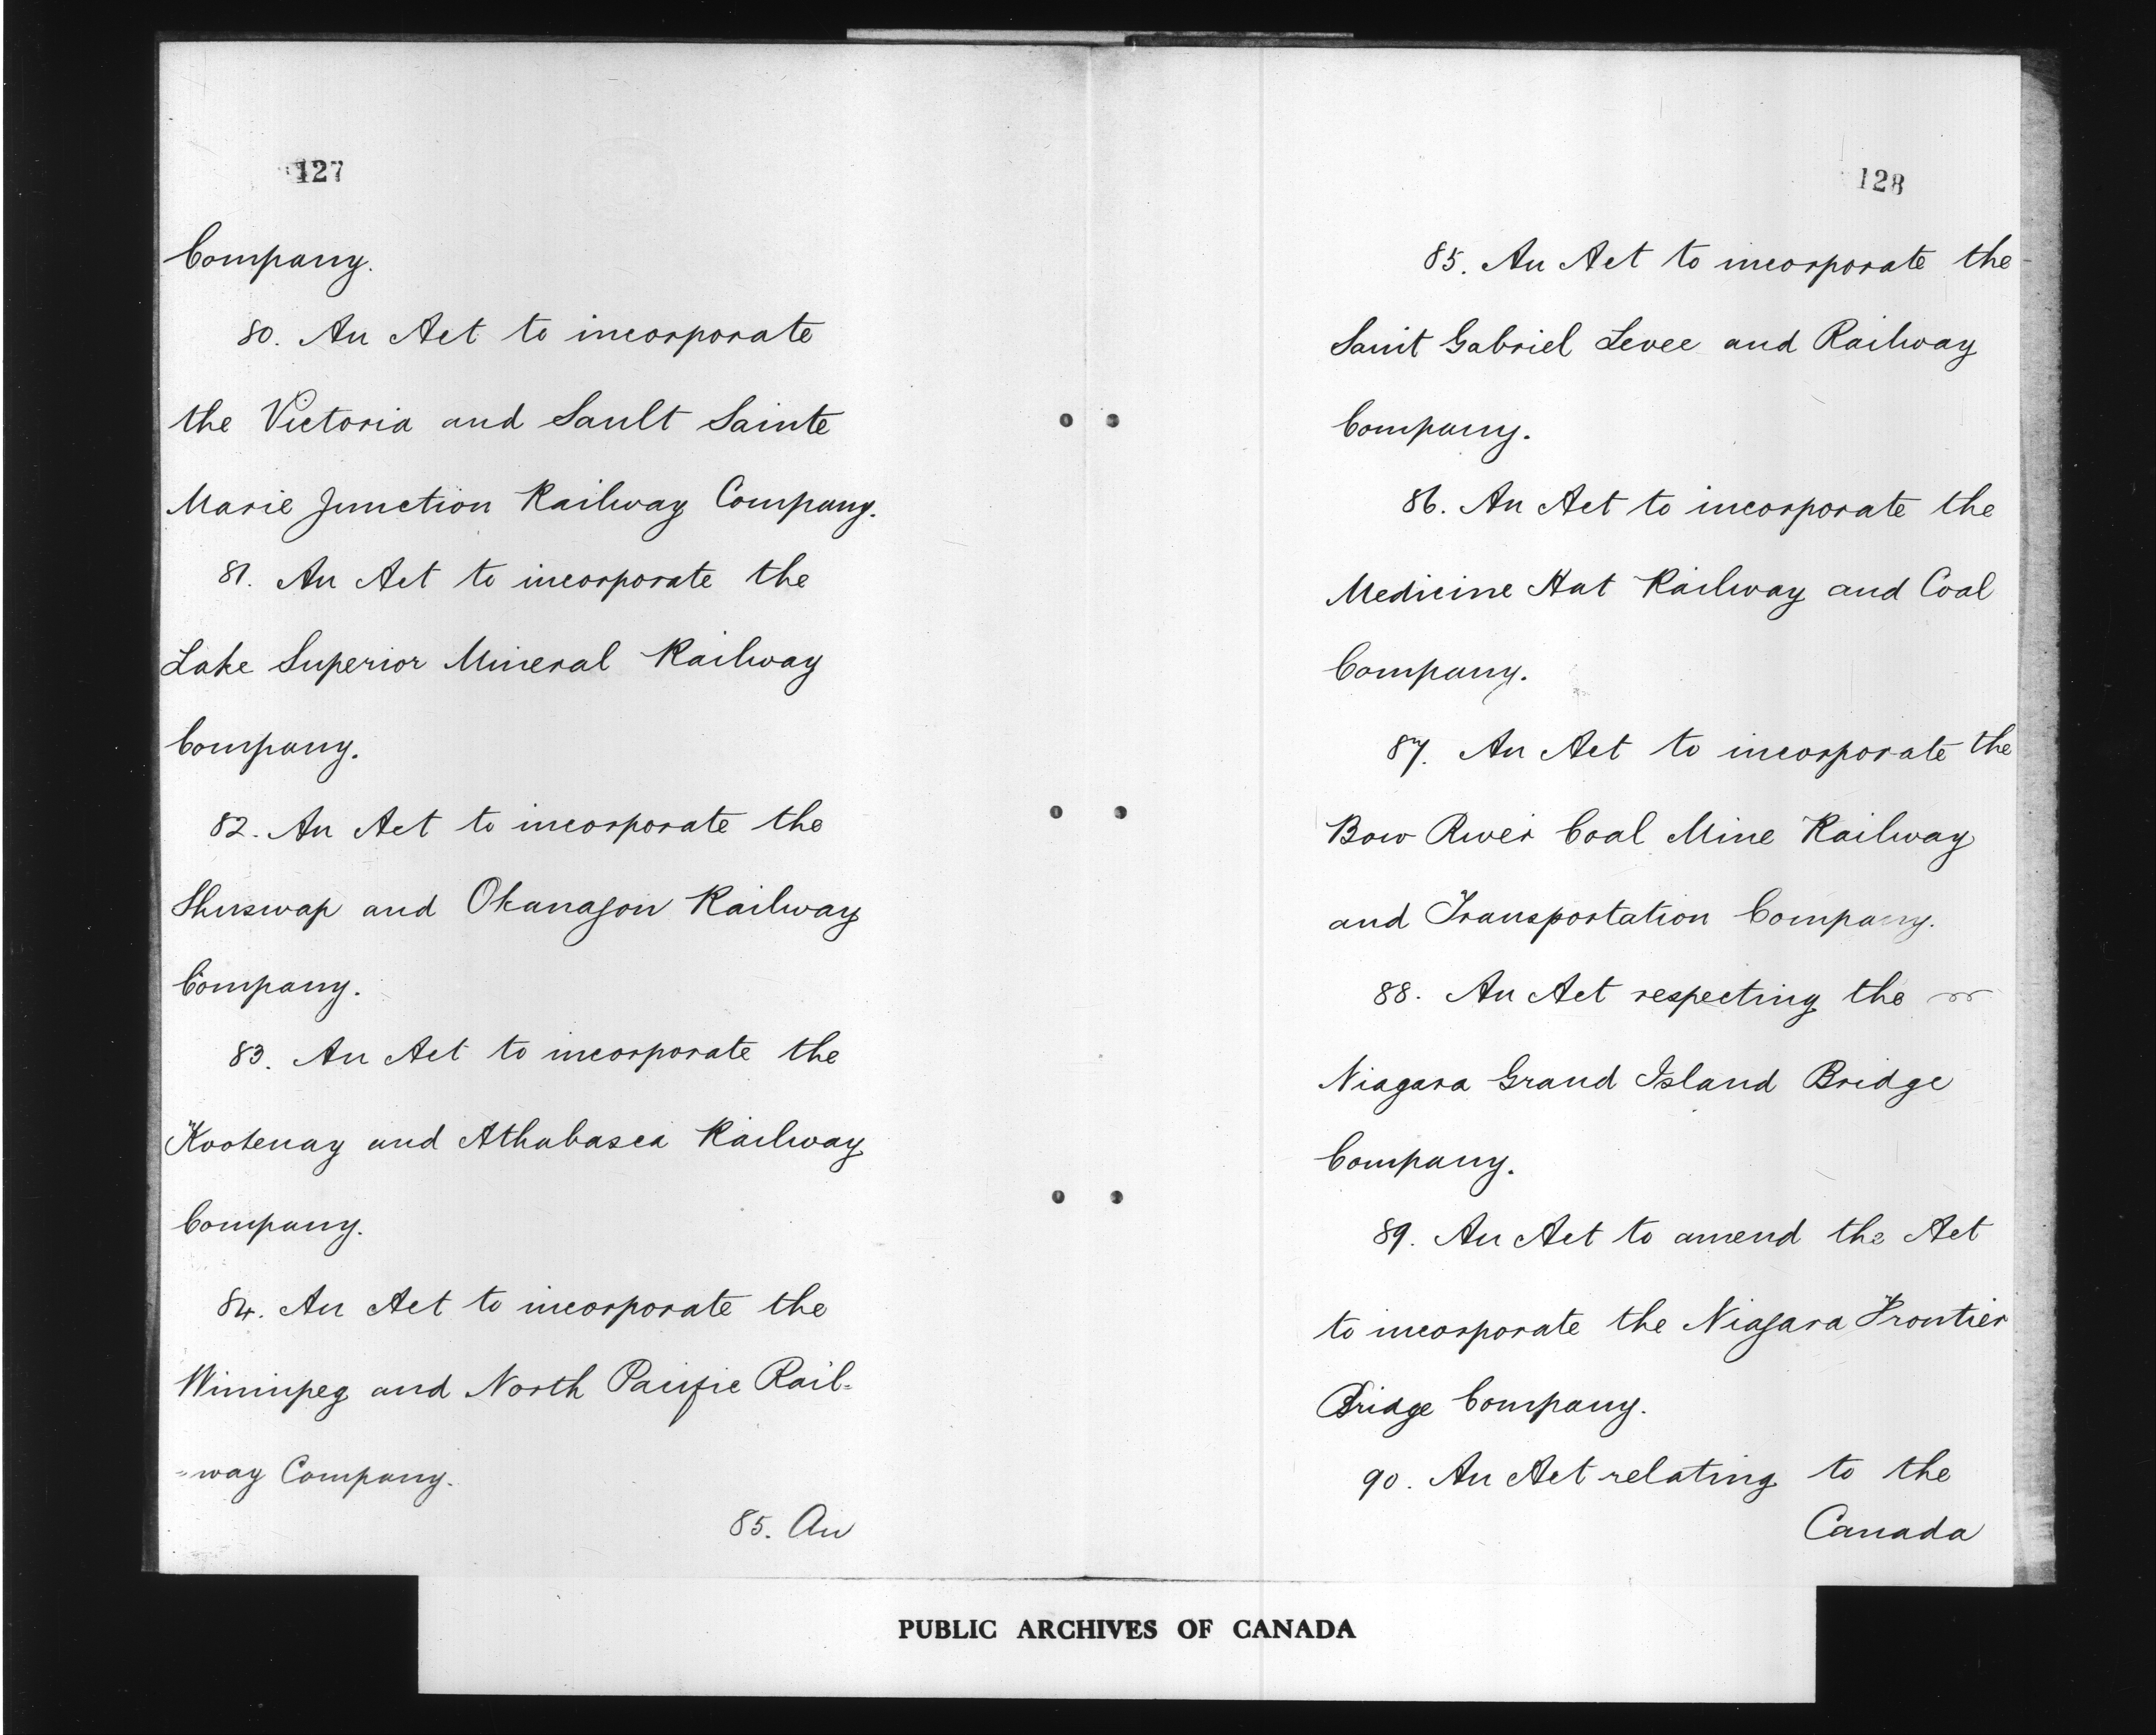 127
Company.
80. An Act to incorporate
the Victoria and Sault Sainte
Marie Junction Railway Company.
81. An Act to incorporate the
Lake Superior Mineral Railway
Company.
82. An Act to incorporate the
Shuswap and Okanagon Railway
Company.
83. An Act to incorporate the
Kootenay and Athabasca Railway
Company.
84. An Act to incorporate the
Winnipeg and North Pacific Rail=
=way Company.
85. An
128
85. An Act to incorporate the
Saint Gabriel Levee and Railway
Company.
86. An Act to incorporate the
Medicine Hat Railway and Coal
Company.
87. An Act to incorporate the
Bow River Coal Mine Railway
and Transportation Company.
88. An Act respecting the
Niagara Grand Island Bridge
Company.
89. An Act to amend the Act
to incorporate the Niagara Frontier
Bridge Company.
90. An Act relating to the
Canada
PUBLIC ARCHIVES OF CANADA